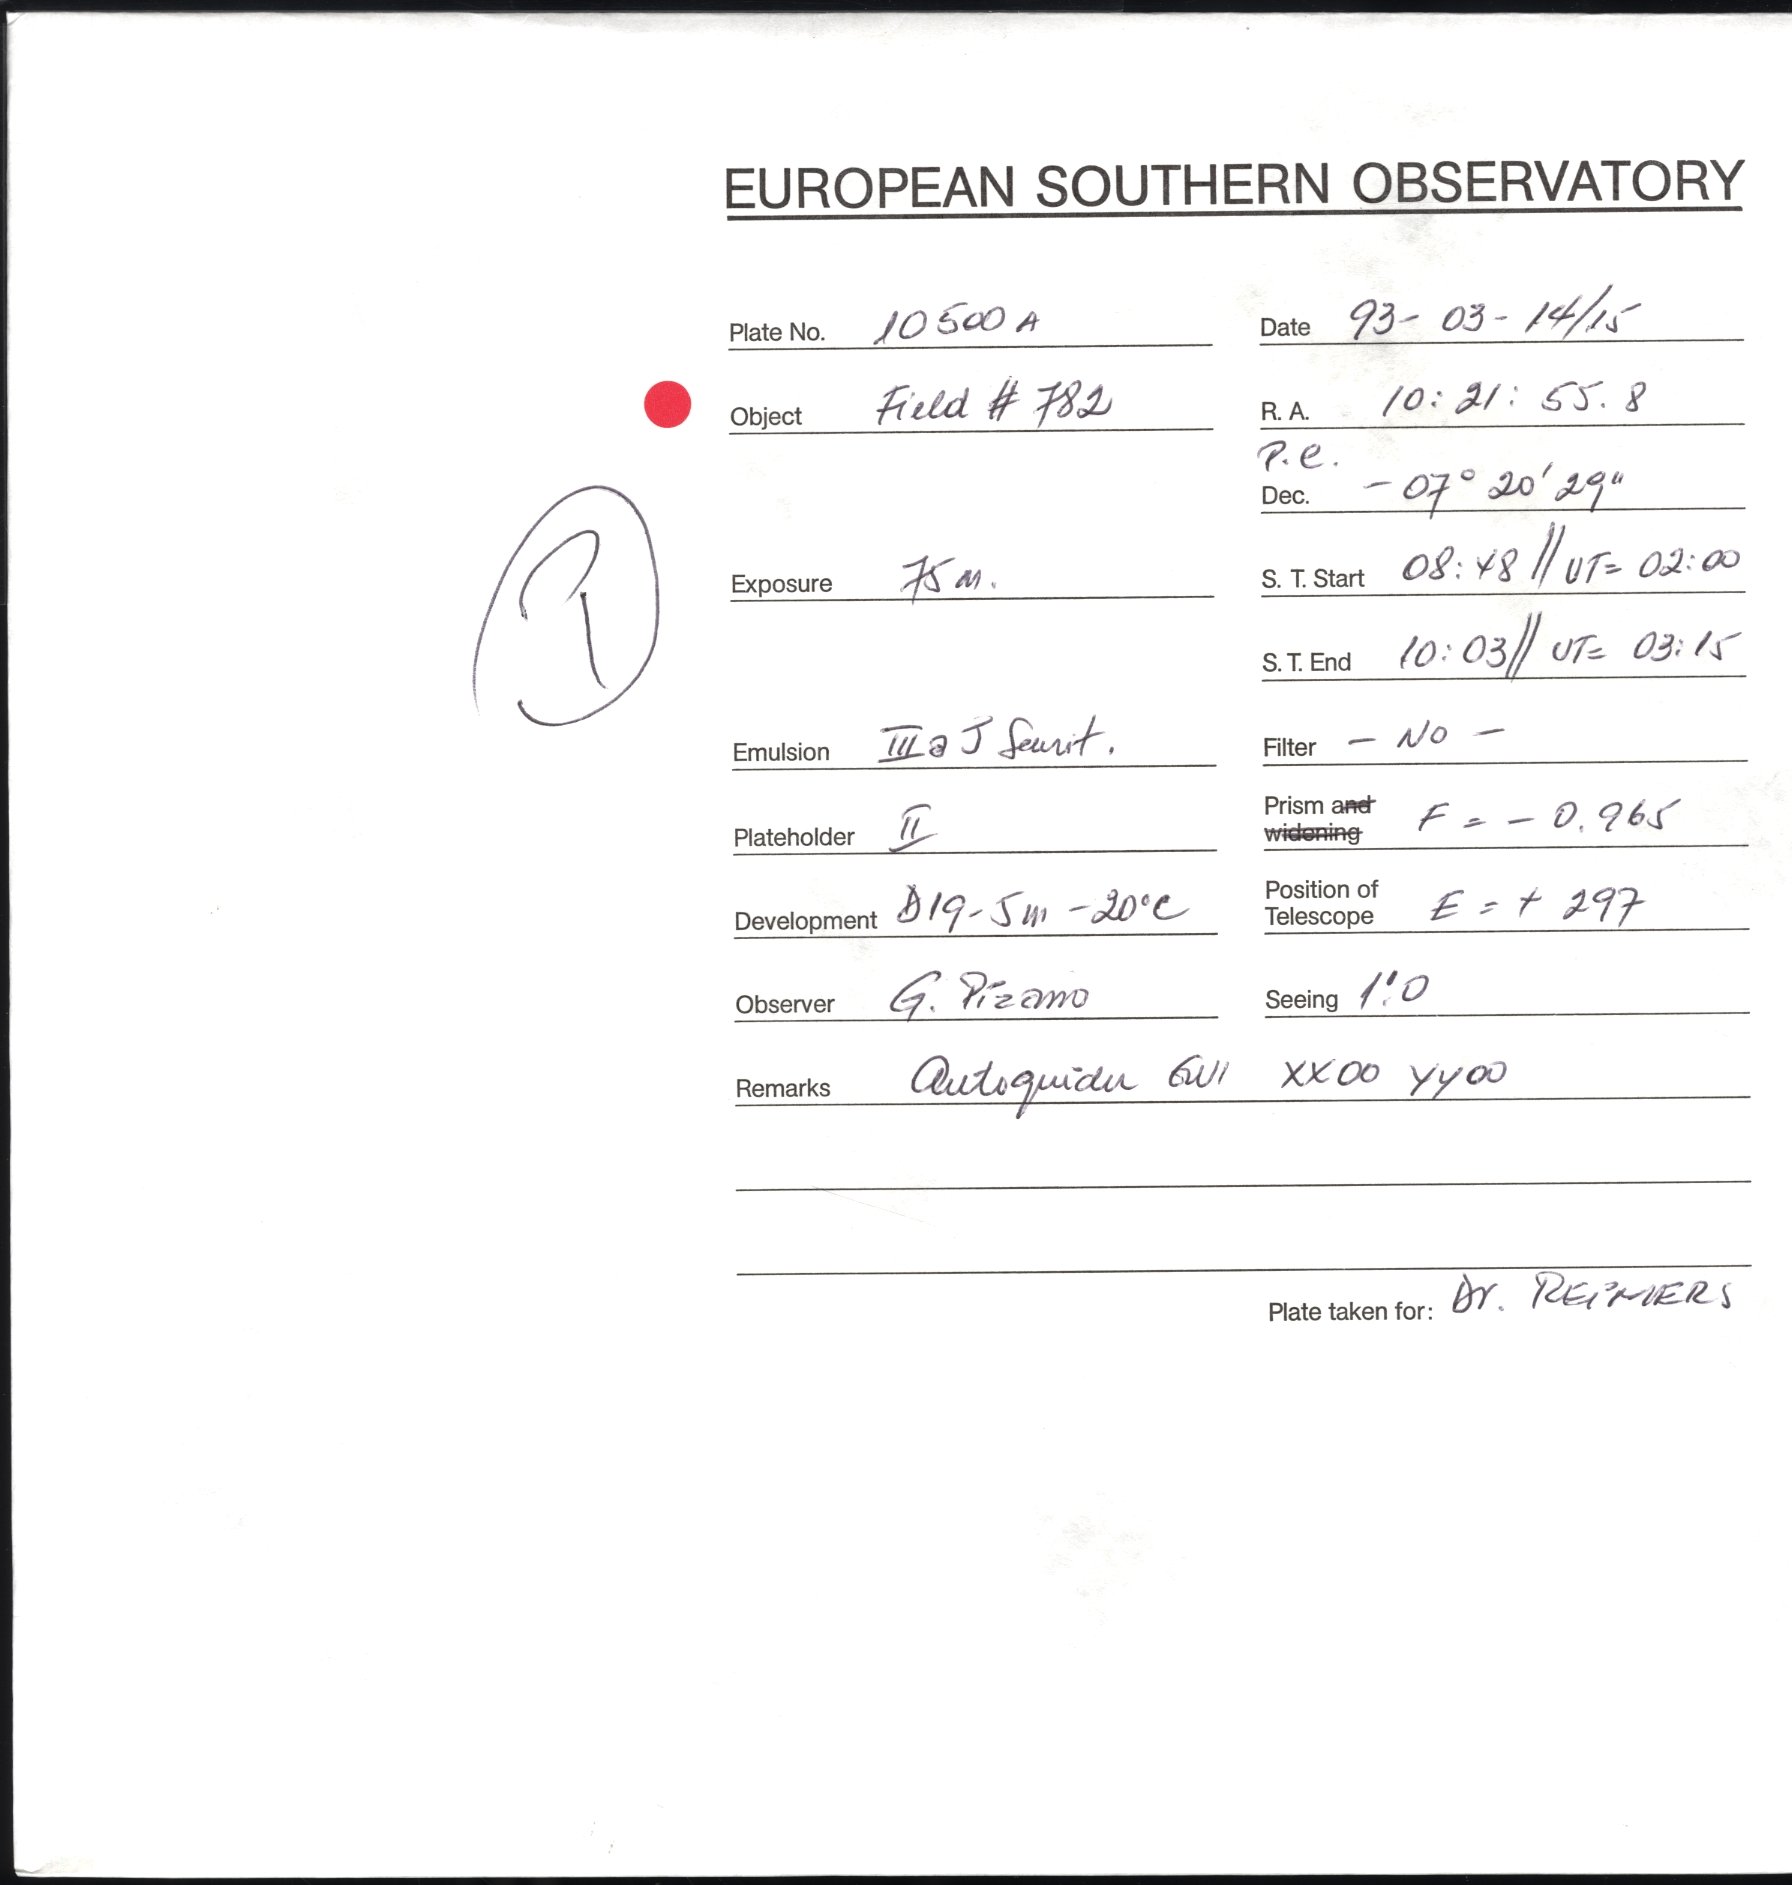 EUROPEAN SOUTHERN OBSERVATORY
Plate No. 10500A Date 93-03-14/15
Object Field # 782 R. A. 10:21:55.8
P.e.
Dec. -07° 20' 29"
Exposure 75 m. S. T. Start 08:48 // UT= 02:00
S. T. End 10:03 // UT= 03:15
Emulsion IIIa J Filter - No -
Prism and
Plateholder II widening F = - 0.965
Position of
Development D19-5m-20°C Telescope E = + 297
Observer G. Pizarro Seeing 1".0
Remarks Autoguider XX00 YY00
Plate taken for: Dr. REIMERS